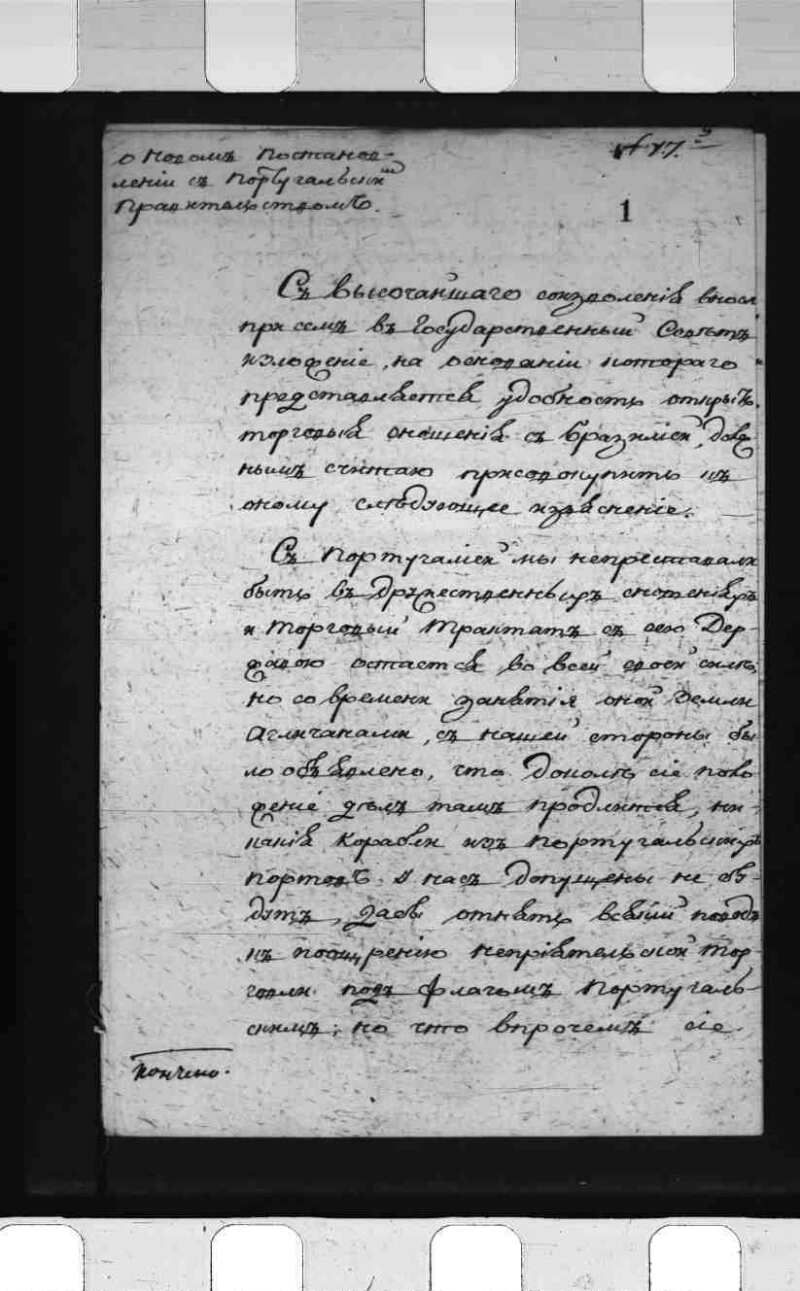 о новомъ постанов-
леніи съ Португальскимъ
Правительствомъ.
№ 17.
1
Съ высочайшаго соизволенія внося
при семъ въ Государственный Совѣтъ
изложеніе, на основаніи котораго
представляется удобность открыть
торговыя сношенія съ Бразиліей, долж
нымъ считаю присовокупить къ
оному слѣдующее изъясненіе.
Съ Португаліей мы непреставали
быть въ дружественныхъ сношеніяхъ
и Торговый Трактатъ съ сею Дер-
жавою остается во всей своей силѣ,
но со времени занятія оной Земли
Агличанами, съ нашей стороны бы
ло объявлено, что доколѣ сіе поло
женіе дѣлъ тамъ продлится, ни-
какія Корабли изъ Португальскихъ
портовъ у насъ допущены не бу-
дутъ, дабы отнять всякій поводъ
къ поощренію непріятельской Тор-
говли подъ флагомъ Португаль-
скимъ; но что впрочемъ сіе
кончено.